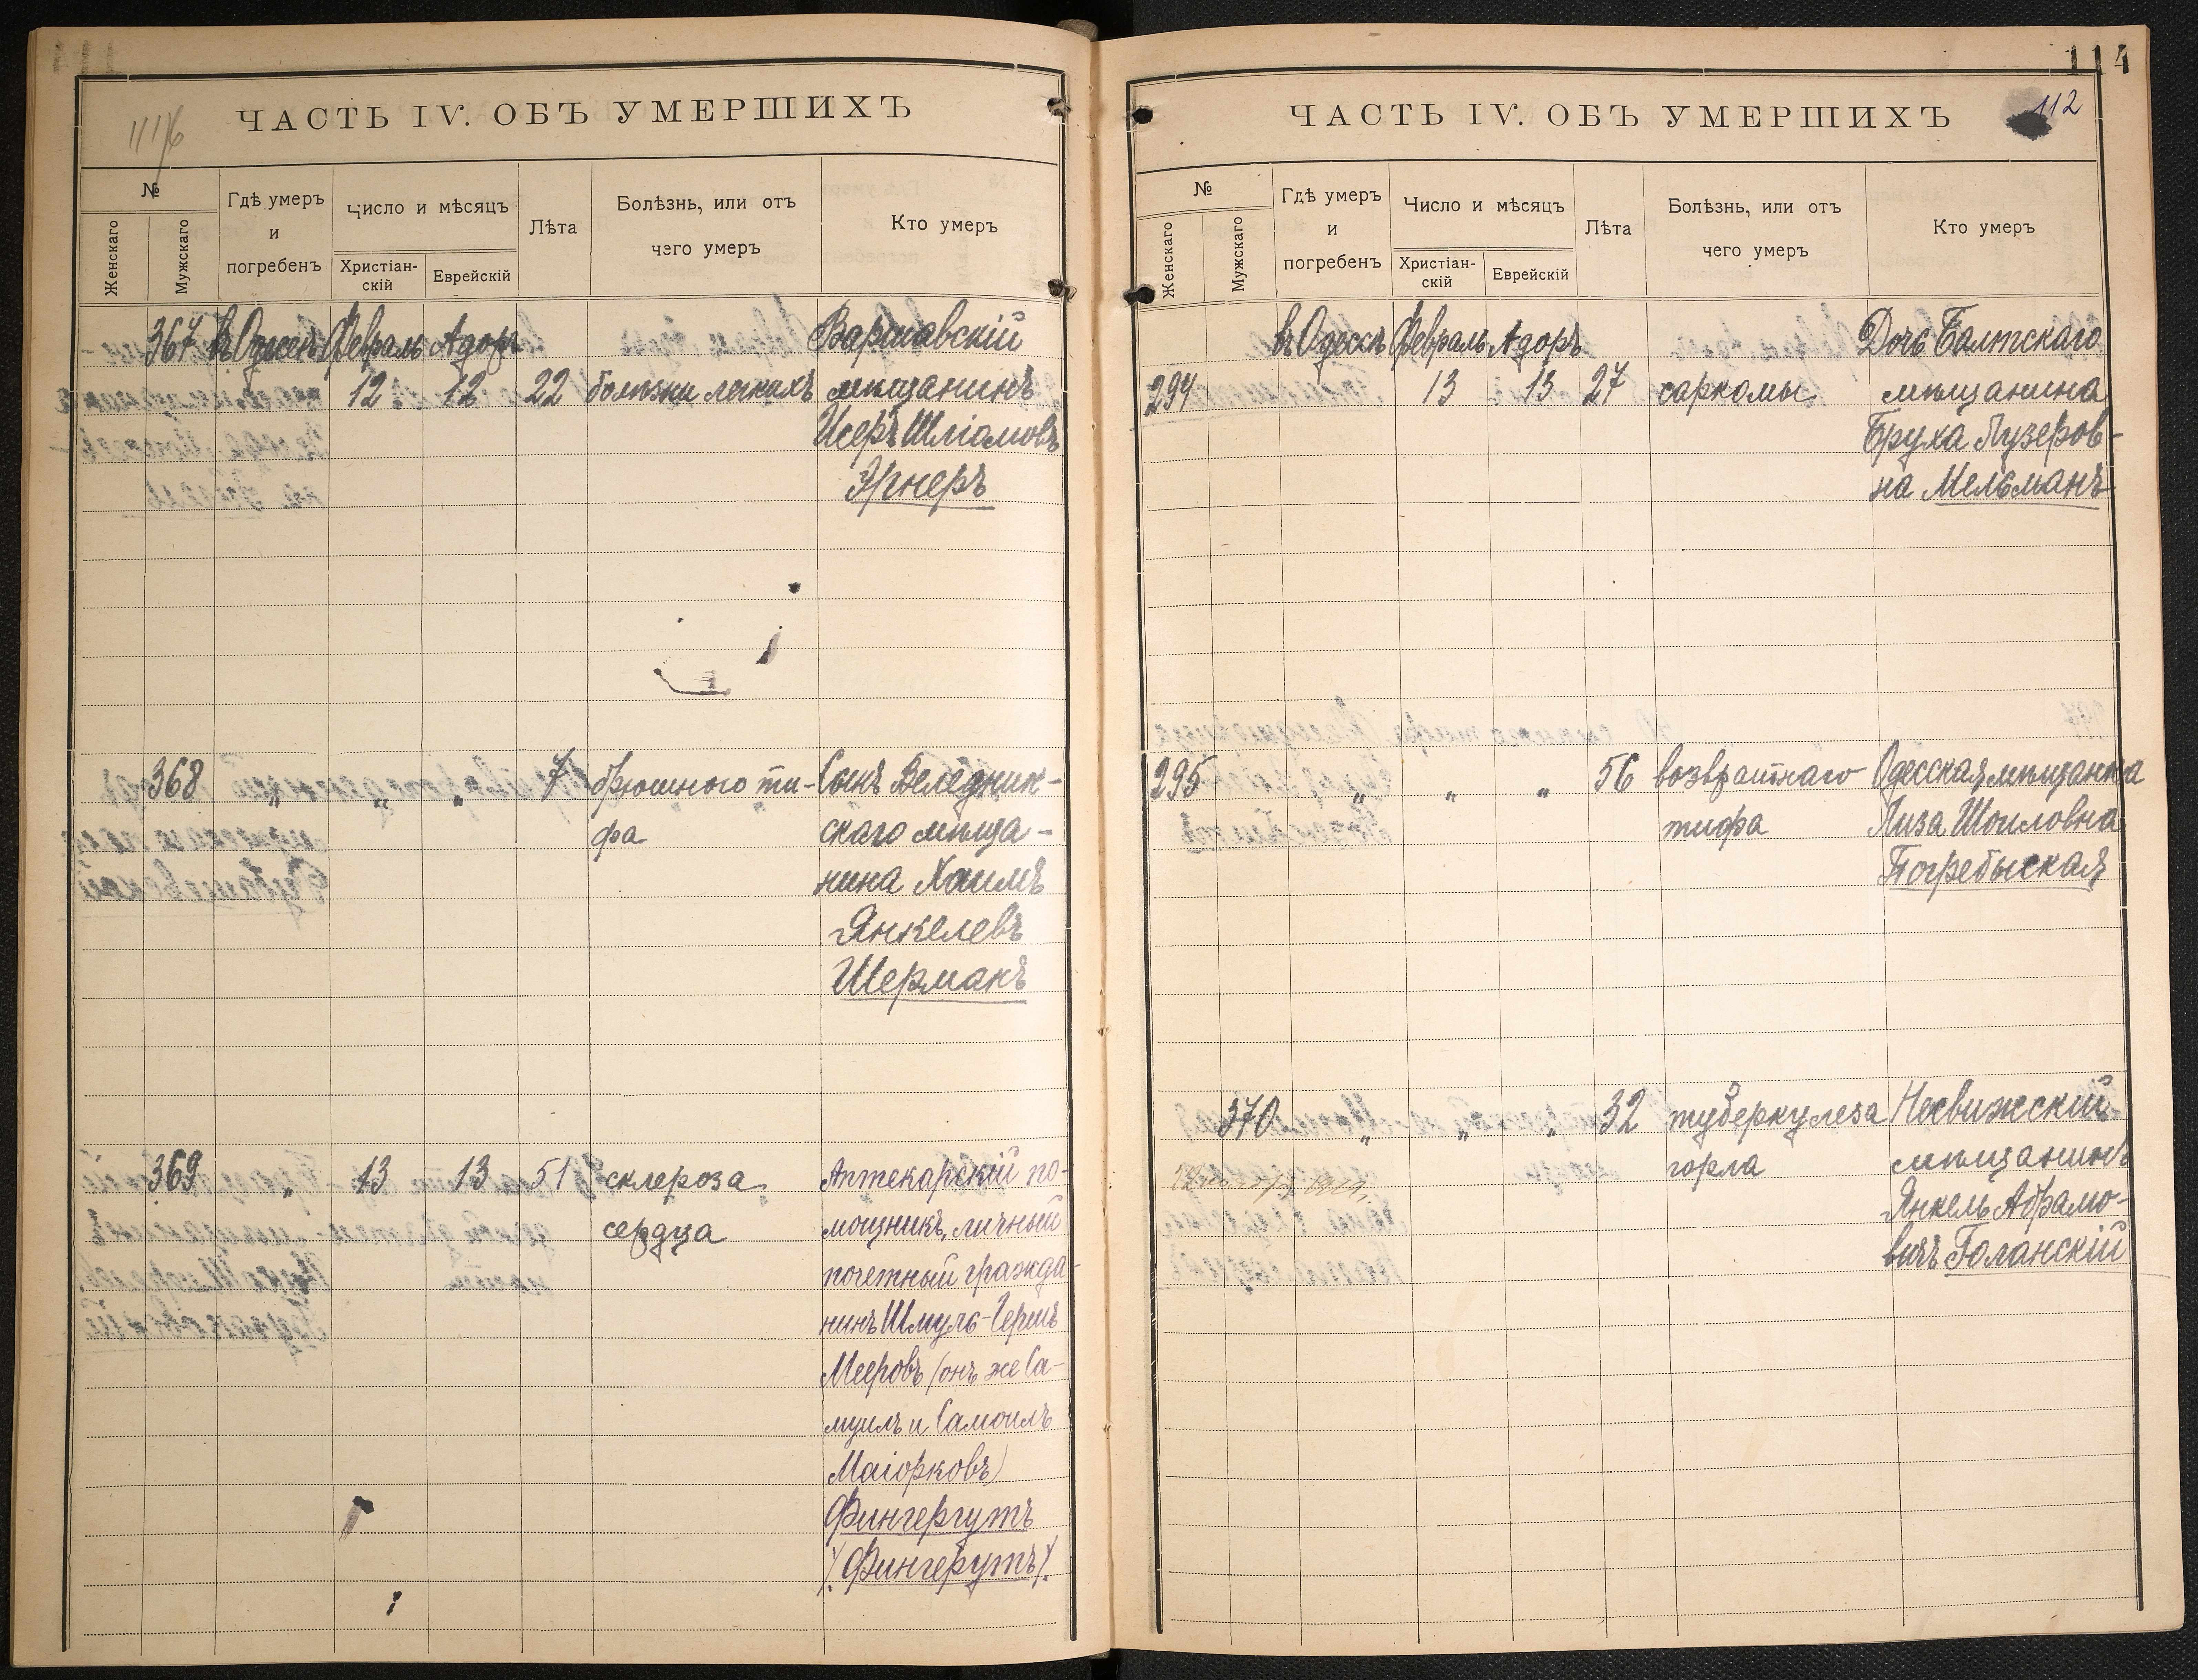 116
ЧАСТЬ IV. ОБЪ УМЕРШИХЪ
№
Женскаго
Мужскаго
Гдѣ умеръ
и
погребенъ
Число и мѣсяцъ
Христіан-
скій
Еврейскій
Лѣта
Болѣзнь, или отъ
чего умеръ
Кто умеръ
367 въ Одессѣ Февраль Адоръ Варшавскій
12 12 22 болѣзни легкихъ мѣщанинъ
Исеръ Шліомовъ
Эрнеръ
368 „ „ „ 7 брюшного ти- Сынъ Веледник-
фа скаго мѣща-
нина Хаимъ
Янкелевъ
Шерманъ
369 „ 13 13 51 склероза Аптекарскій по-
сердца мощникъ, личный
почетный гражда-
нинъ Шмуль-Гершъ
Мееровъ (онъ же Са-
муилъ и Самоилъ
Маіорковъ)
Фингергутъ
(Фингерутъ).
114
112
ЧАСТЬ IV. ОБЪ УМЕРШИХЪ
№
Женскаго
Мужскаго
Гдѣ умеръ
и
погребенъ
Число и мѣсяцъ
Христіан-
скій
Еврейскій
Лѣта
Болѣзнь, или отъ
чего умеръ
Кто умеръ
въ Одессѣ Февраль Адоръ Дочь Балтскаго
294 13 13 27 саркомы мѣщанина
Бруха Лузеров-
на Мельманъ
295 „ „ „ 56 возвратнаго Одесская мѣщанка
тифа Лиза Шоиловна
Погребыская
370 „ „ „ 32 туберкулеза Несвижскій
горла мѣщанинъ
Янкель Абрамо-
вичъ Голанскій